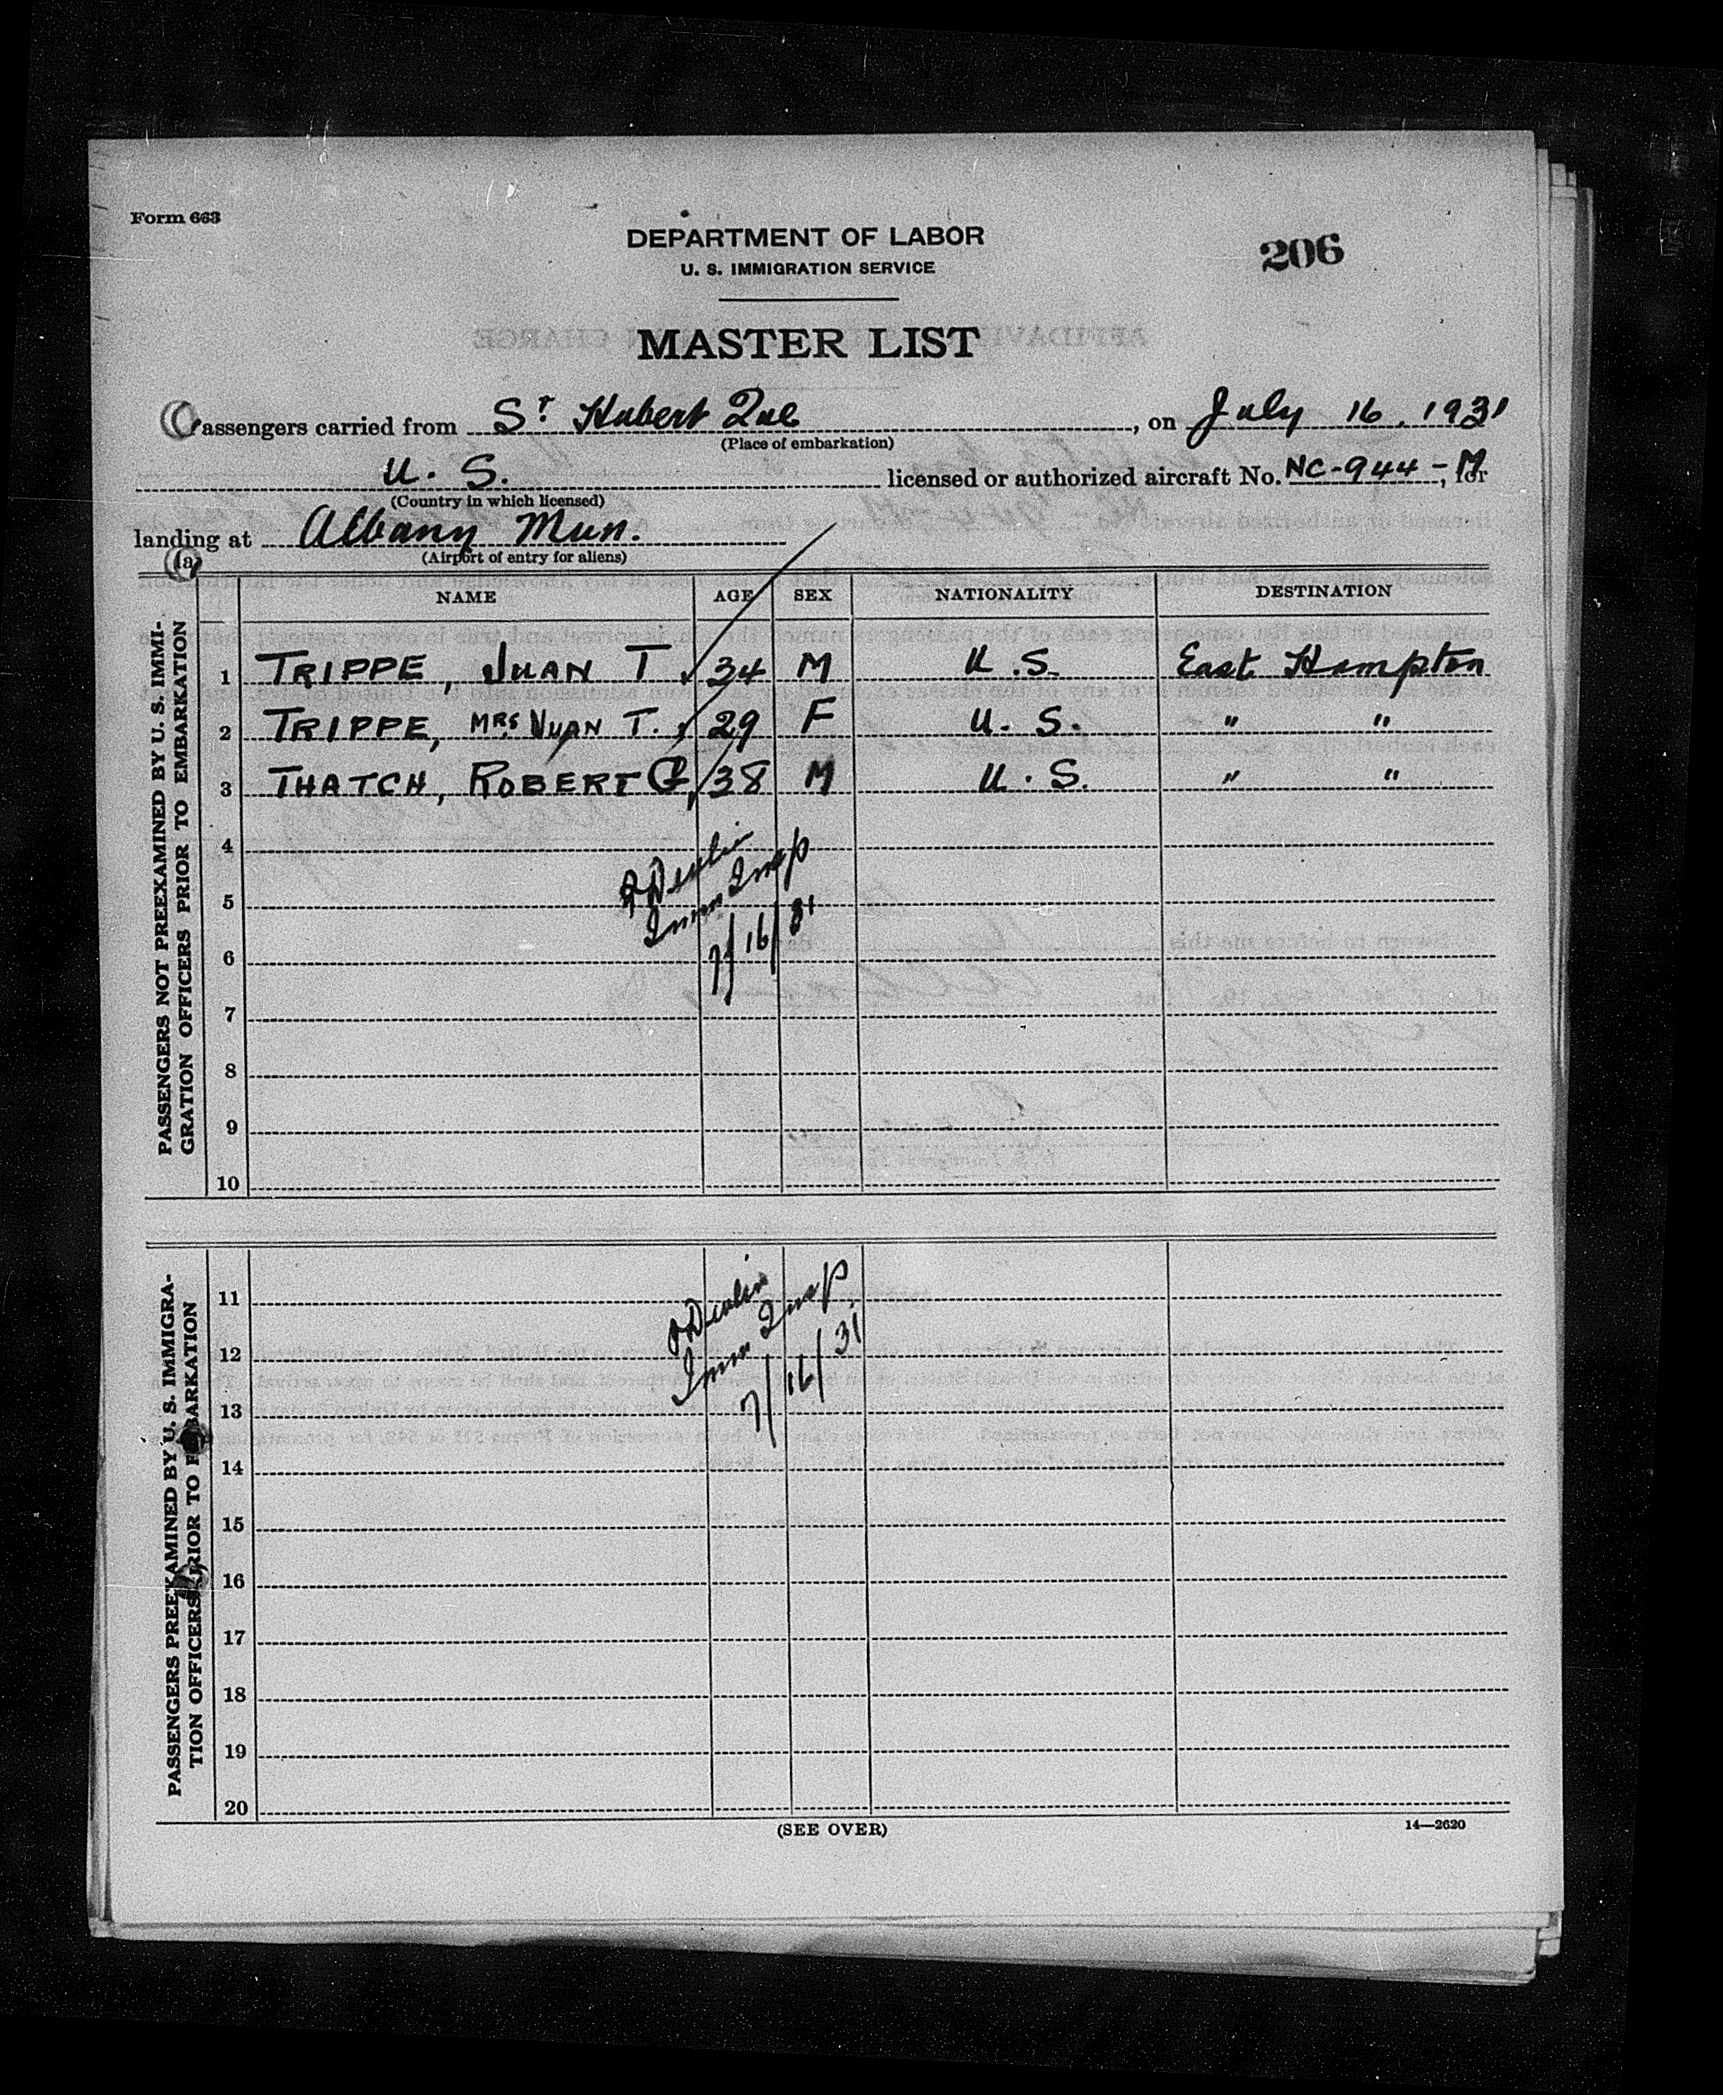 Form 663
DEPARTMENT OF LABOR
U. S. IMMIGRATION SERVICE
206
MASTER LIST
Passengers carried from St Hubert Que, on July 16, 1931
(Place of embarkation)
U. S. licensed or authorized aircraft No. NC-944-M, for
(Country in which licensed)
landing at Albany Mun.
(Airport of entry for aliens)
(a)
NAME AGE SEX NATIONALITY DESTINATION
PASSENGERS NOT PREEXAMINED BY U. S. IMMI-
GRATION OFFICERS PRIOR TO EMBARKATION
1 TRIPPE, JUAN T. 34 M U.S. East Hampton
2 TRIPPE, MRS JUAN T. 29 F U. S. " "
3 THATCH, ROBERT G, 38 M U. S. " "
4
5
6
7
8
9
10
Devlin
Imm Insp
7/16/31
PASSENGERS PREEXAMINED BY U. S. IMMIGRA-
TION OFFICERS PRIOR TO EMBARKATION
11
12
13
14
15
16
17
18
19
20
Devlin
Imm Insp
7/16/31
(SEE OVER)
14—2620